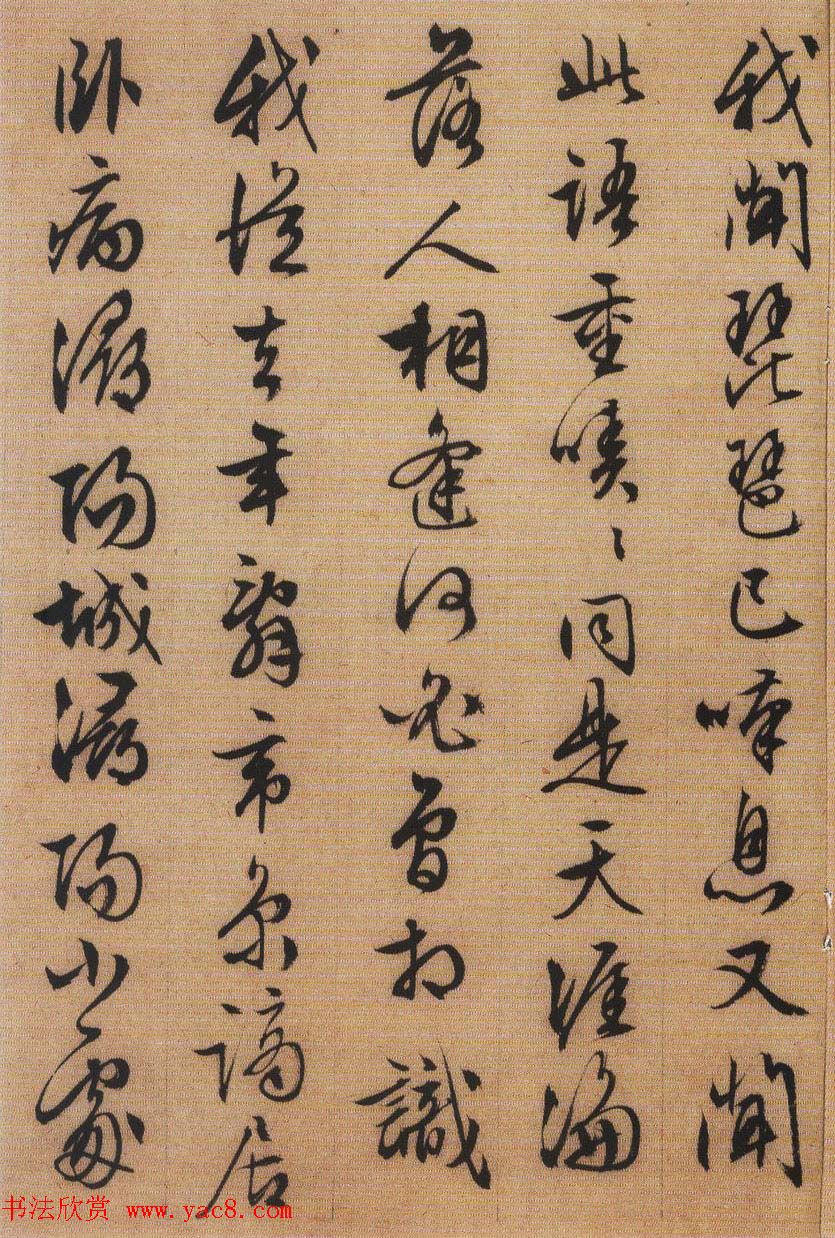 我聞琵琶已嘆息又聞
此語重嘖〻同是天涯淪
落人相逢何必曾相識
我從去年辭帝京謫居
卧病潯陽城潯陽小處
书法欣赏 www.yac8.com